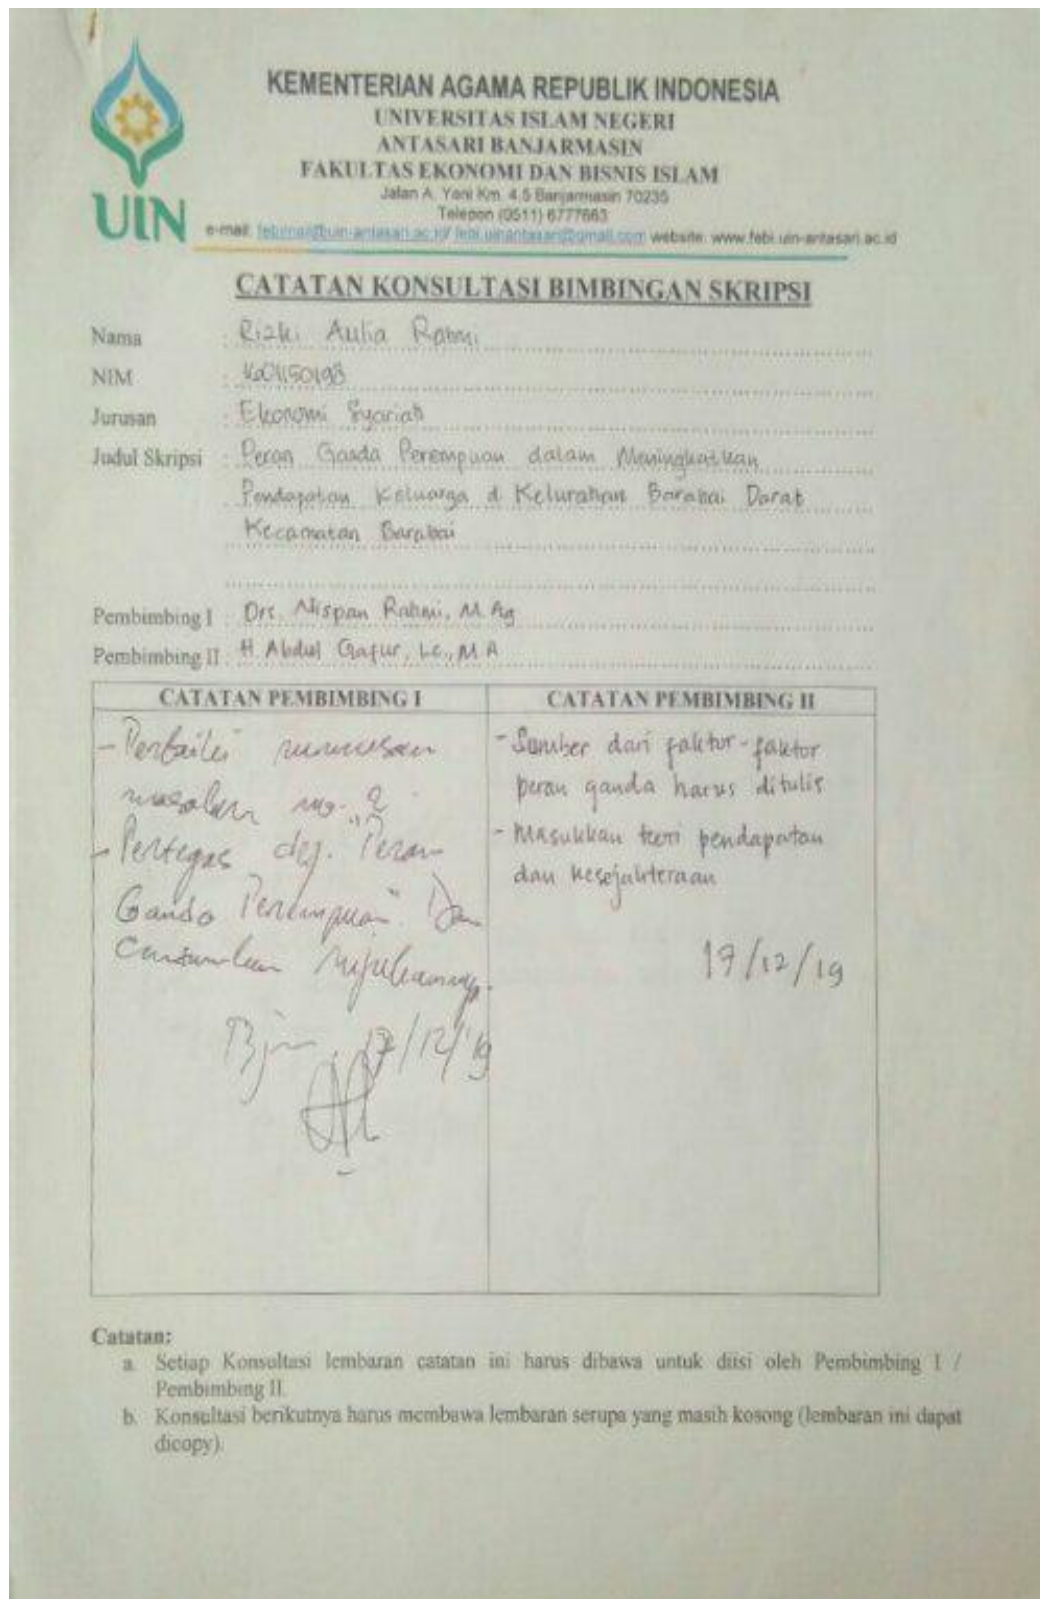 UIN
KEMENTERIAN AGAMA REPUBLIK INDONESIA
UNIVERSITAS ISLAM NEGERI
ANTASARI BANJARMASIN
FAKULTAS EKONOMI DAN BISNIS ISLAM
Jalan A. Yani Km. 4,5 Banjarmasin 70235
Telepon (0511) 6777663
e-mail: website: www.febi.uin-antasari.ac.id
CATATAN KONSULTASI BIMBINGAN SKRIPSI
Nama : Rizki Aulia Rahmi
NIM :
Jurusan : Ekonomi Syariah
Judul Skripsi : Peran Ganda Perempuan dalam Meningkatkan
Pendapatan Keluarga di Kelurahan Barabai Darat
Kecamatan Barabai
Pembimbing I : Drs. Nispan Rahmi, M.Ag
Pembimbing II : H. Abdul Gafur, Lc., M.A
CATATAN PEMBIMBING I
- Perbaiki rumusan
masalah no. 2
- Pertegas def. "Peran
Ganda Perempuan". Dan
cantumkan rujukannya.
Bjm, 17/12/19
CATATAN PEMBIMBING II
- Sumber dari faktor-faktor
peran ganda harus ditulis
- Masukkan teori pendapatan
dan kesejahteraan
17/12/19
Catatan:
a. Setiap Konsultasi lembaran catatan ini harus dibawa untuk diisi oleh Pembimbing I /
Pembimbing II.
b. Konsultasi berikutnya harus membawa lembaran serupa yang masih kosong (lembaran ini dapat
dicopy).